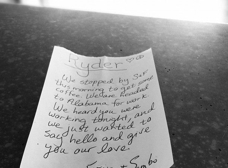 Ryder
We stopped by Sir
this morning to get some
coffee. We are headed
to Alabama for work
We heard you were
working tonight, and
we just wanted to
say hello and give
you our love.
+ Sabo